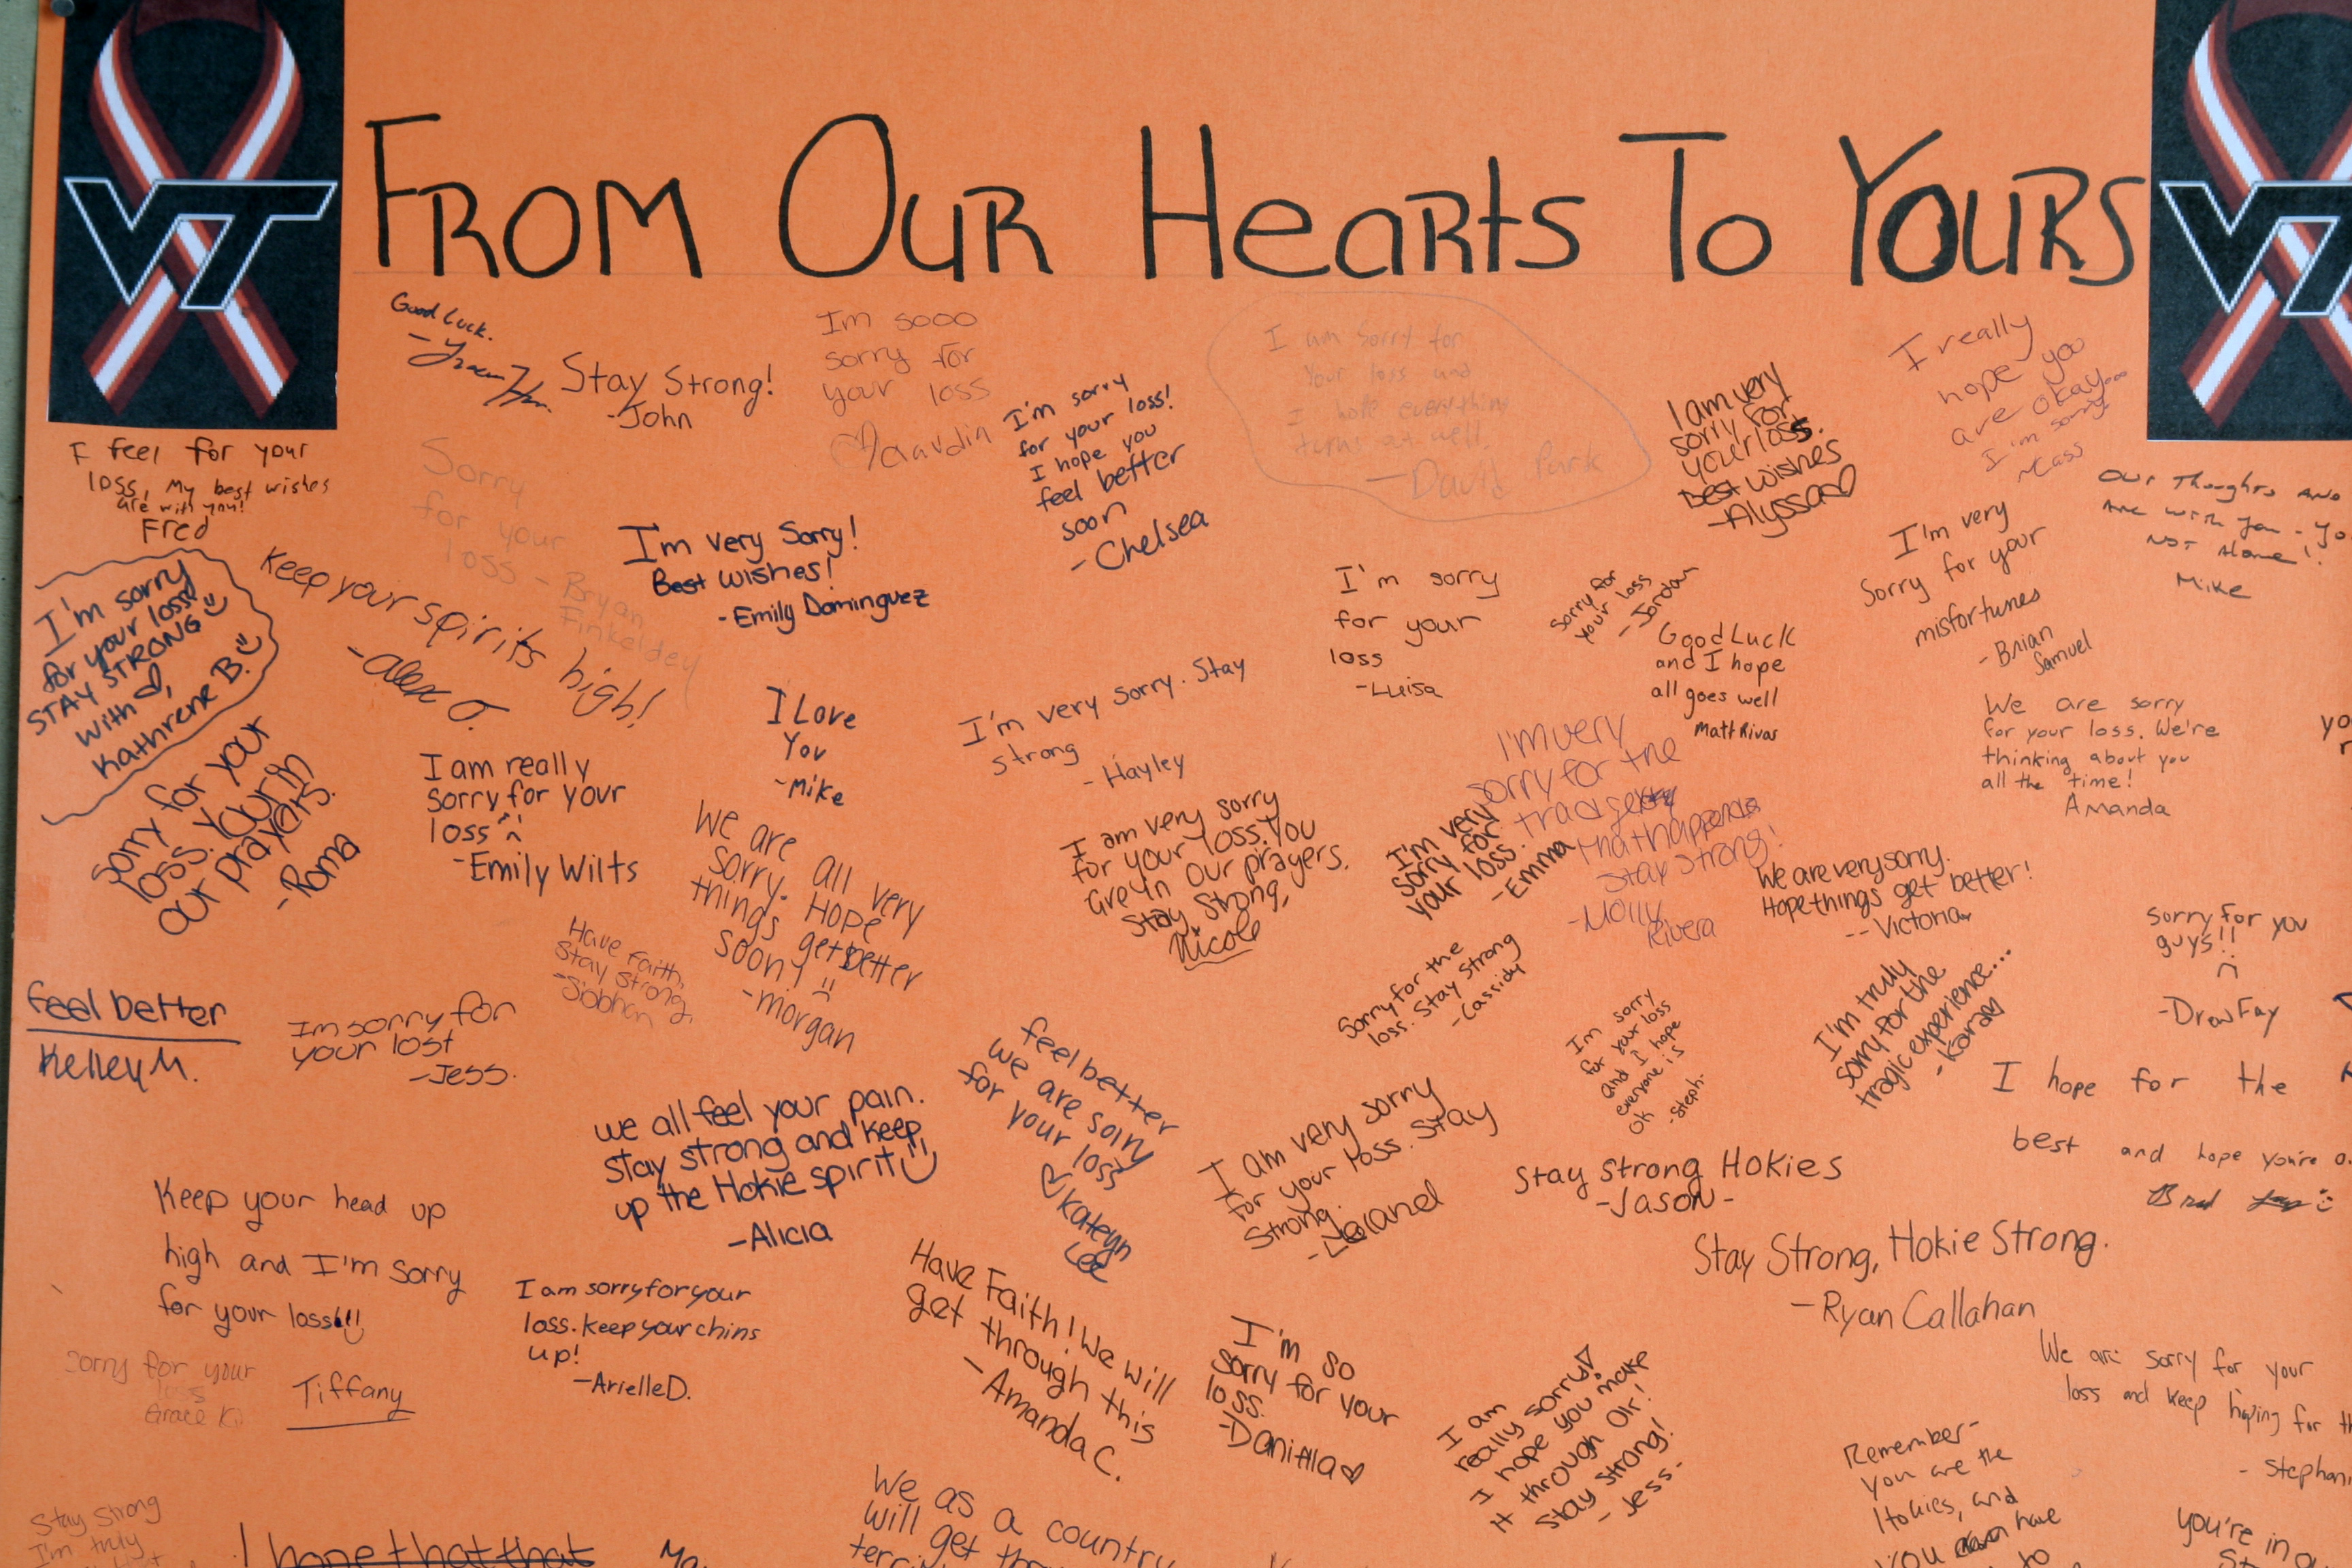 VT
VT
FROM OUR HeARtS To YOURS
Good Luck.
Stay Strong!
-John
Im sooo
sorry for
your loss
I'm sorry
for your loss!
I hope you
feel better
soon
-Chelsea
I am Sorry for
Your loss and
I hope everything
turns out well.
-David Park
I am very
sorry for
your loss.
Best wishes
-Alyssa
I really
hope you
are okay...
I'm sorry
~Cass
I feel for your
loss, My best wishes
are with you!
Fred
Sorry
for your
loss - Bryan
Finkeldey
I'm very Sorry!
Best wishes!
-Emily Dominguez
Our Thoughts And
Are with you - Yo
Not Alone!
Mike
I'm sorry
for your loss
STAY STRONG
with
Kathrene B.
Keep your spirits high!
-Alex O.
I'm sorry
for your
loss
-Luisa
Sorry for
your loss
-Jordan
Good Luck
and I hope
all goes well
Matt Rivas
I'm very
Sorry for your
misfortunes
-Brian
Samuel
We are sorry
for your loss. We're
thinking about you
all the time!
Amanda
yo
Sorry for your
loss. Your in
our prayers.
-Roma
I am really
sorry for your
loss
-Emily Wilts
I Love
You
-Mike
I'm very sorry. Stay
strong
-Hayley
We are all very
sorry. Hope
things get better
soon!
-morgan
I am very sorry
for your loss. You
are in our prayers.
Stay Strong,
Nicole
I'm very
sorry for
your loss.
-Emma
I'm very
sorry for the
tragedy
that happened
Stay strong!
-Molly
Rivera
We are very sorry.
Hope things get better!
-- Victoria
Sorry for you
guys!!
-Drew Fay
Have Faith,
Stay Strong,
-Siobhan
Sorry for the
loss. Stay Strong
-Cassidy
I'm truly
sorry for the
tragic experience...
-Karan
feel better
Kelley M.
Im sorry for
your lost
-Jess.
Im sorry
for your loss
and I hope
everyone is
ok -Steph.
feel better
we are sorry
for your loss
Katelyn
Lee
I hope for the
best and hope you're o
we all feel your pain.
stay strong and keep
up the Hokie spirit
-Alicia
I am very sorry
for your loss. Stay
Strong.
Stay Strong Hokies
-Jason-
Keep your head up
high and I'm sorry
for your loss!!!
Tiffany
Stay Strong, Hokie Strong.
-Ryan Callahan
I am sorry for your
loss. keep your chins
up!
-Arielle D.
Have Faith! We will
get through this
-Amanda C.
I'm so
sorry for your
loss.
-Daniella
Sorry for your
loss
Grace Ki
I am
really sorry!
I hope you make
it through Ok!
Stay strong!
-Jess-
We are sorry for your
loss and keep hoping for th
-Stephani
Remember-
you are the
Hokies, and
you can have
to
Stay Strong
I'm truly
I hope that that
Ma
We as a country
will get thr
terri
you're in o
St